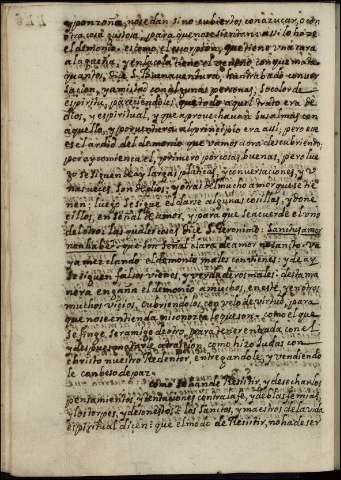 y ponzoña, no se dan sino cubiertos con azucar, o con
otra cosa gustosa, para que no se sienta, assi lo haze
el demonio. es como el escorpion, que tiene una cara
alagueña, y en la cola tiene el veneno con que mata
quantos, dize S. Buenaventura, han trabado conver
sacion, y amistad con algunas personas, so color de
espiritu, pareciendoles que todo aquel trato era de
Dios, y espiritual, y que aprovechavan sus almas con
aquello, y por ventura al principio era assi; pero
es el ardid del demonio que vamos aora descubriendo.
por ay comiença el, primero por cosas buenas, pero lue
go se siguen de ay largas platicas, y conversaciones, y u
nas veces son de Dios, y otras del mucho amor que se tie
nen: luego se sigue el darse algunas cosillas, y done
cillos, en señal de amor, y para que se acuerde el uno
del otro. las quales cosas dize S. Geronimo: Sanctus amor
non habet: que son señal clara de amor no santo. Va
ya mezclando el demonio males con vienes: y de ay
se siguen falsos vienes, y verdaderos males. desta ma
nera engaña el demonio a muchos, en este, y en otros
muchos vicios, cubriendolos, con velo de virtud, para
que no se entienda ni conozca lo que son. como el que
se finge ser amigo de otro, para tener entrada con el
y despues matarle a traicion. como hizo Judas con
christo nuestro Redentor, entregandole, y vendiendo
le con beso de paz.
como se han de resistir, y desechar los
pensamientos, y tentaciones contra la fe, y de blasfemias,
y los torpes, y desonestos: los Santos, y maestros de la vida
espiritual dicen: que el modo de resistir, no ha de ser